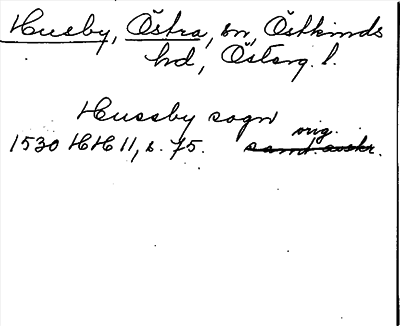 Husby, Östra, sn, Östkinds
hd, Österg. l.
Hussby sogn
orig.
1530 HH 11, s. 75. samt. avskr.